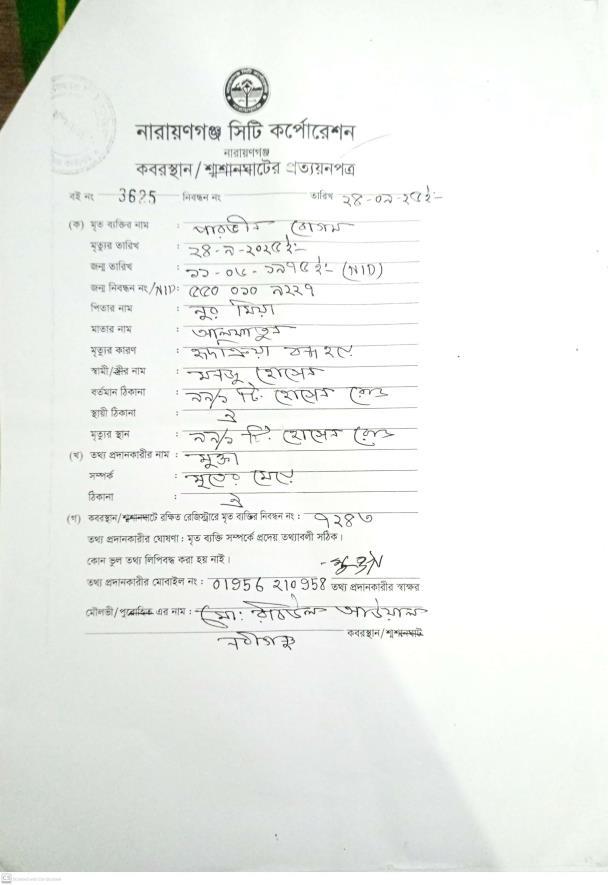 নারায়ণগঞ্জ সিটি কর্পোরেশন
নারায়ণগঞ্জ
কবরস্থান/শ্মশানঘাটের প্রত্যয়নপত্র
বই নং 3625 নিবন্ধন নং তারিখ ২৪-০৯-২৫ইং
(ক) মৃত ব্যক্তির নাম : পারভীন বেগম
মৃত্যুর তারিখ : ২৪-৯-২০২৫ইং
জন্ম তারিখ : ১১-০৫-১৯৭৫ইং (NID)
জন্ম নিবন্ধন নং/NID: ৫৫০ ০১০ ৯২২৭
পিতার নাম : নুর মিয়া
মাতার নাম :
মৃত্যুর কারণ : হৃদক্রিয়া বন্ধ হয়ে
স্বামী/স্ত্রীর নাম : মনজু হোসেন
বর্তমান ঠিকানা : ৯৯/১ টি. হোসেন রোড
স্থায়ী ঠিকানা : ঐ
মৃত্যুর স্থান : ৯৯/১ টি. হোসেন রোড
(খ) তথ্য প্রদানকারীর নাম : মুক্তা
সম্পর্ক : মৃতের মেয়ে
ঠিকানা : ঐ
(গ) কবরস্থান/শ্মশানঘাটে রক্ষিত রেজিস্ট্রারে মৃত ব্যক্তির নিবন্ধন নং : ৭২৪৩
তথ্য প্রদানকারীর ঘোষণা : মৃত ব্যক্তি সম্পর্কে প্রদেয় তথ্যাবলী সঠিক।
কোন ভুল তথ্য লিপিবদ্ধ করা হয় নাই।
তথ্য প্রদানকারীর মোবাইল নং : 01956 210958 তথ্য প্রদানকারীর স্বাক্ষর
মৌলভী/পুরোহিত এর নাম : মোঃ
কবরস্থান/শ্মশানঘাট
নবীগঞ্জ